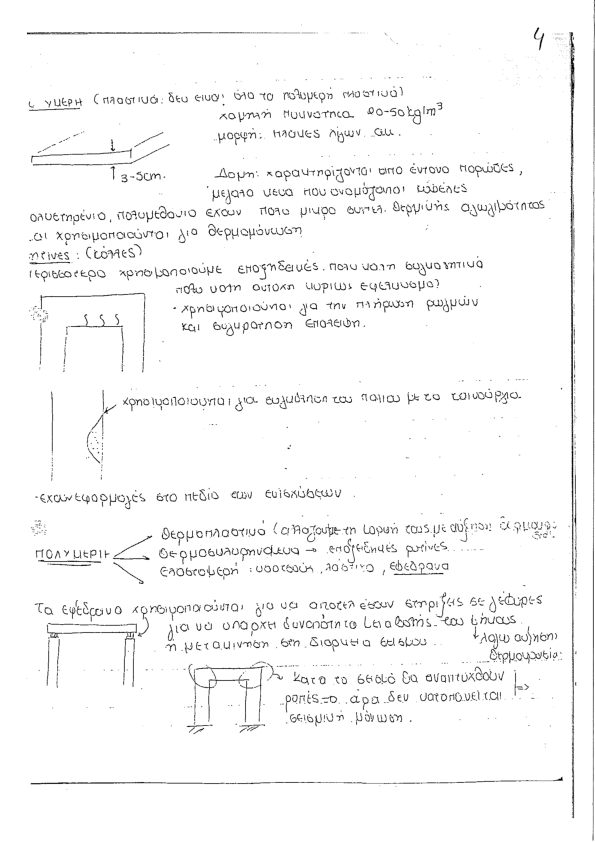 4
ΥΜΕΡΗ (πλαστικά: δεν είναι όλα τα πολυμερή πλαστικά)
χαμηλή πυκνότητα 20-50 kg/m³
μορφή: πλάκες λίγων cm.
3-5cm.
Δομή: χαρακτηρίζονται από έντονο πορώδες,
μεγάλα κενά που ονομάζονται κυψέλες
ολυστηρένιο, πολυμεθάνιο έχουν πολύ μικρό συντελ. θερμικής αγωγιμότητας
αι χρησιμοποιούνται για θερμομόνωση
ητίνες: (κόλλες)
ερισσότερο χρησιμοποιούμε εποξηδεικές. πολύ καλή συγκολητικά
πολύ καλή αντοχή κυρίως εφελκυσμό)
- χρησιμοποιούνται για την πλήρωση ρωγμών
και συγκράτηση επαλείψη.
χρησιμοποιούνται για συγκόλληση του παλιού με το καινούργιο.
-έχουν εφαρμογές στο πεδίο των ενισχύσεων.
ΠΟΛΥΜΕΡΗ
Θερμοπλαστικά (αλλάζουμε τη μορφή τους με αύξηση θερμοκρ.
Θερμοσκληρηνόμενα → εποξειδηκές ρητίνες
Ελαστομερή: καουτσούκ, λάστιχο, εφέδρανα
Τα εφέδρανα χρησιμοποιούνται για να αποτελέσουν στηρίξεις σε γέφυρες
για να υπάρχει δυνατότητα μεταβολής του μήκους
ή μετακίνηση στη διάρκεια σεισμού.
λόγω αύξησης
θερμοκρασία:
Κατά το σεισμό θα αναπτυχθούν
ροπές → άρα δεν καταπονείται
σεισμική μόνωση.